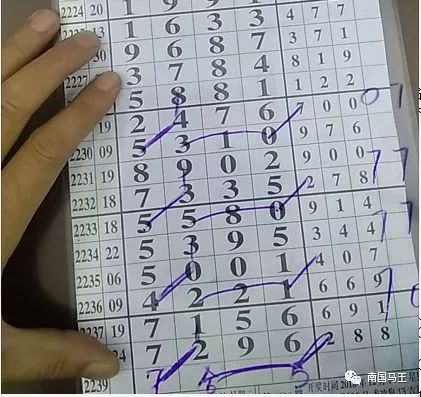 2224 20 1 9
13 1 6 3 3 4 7 7
9 6 8 7 3 7 1
3 7 8 4 8 1 9
5 8 8 1 1 2 2
19 2 4 7 6 7 0 0 0 7
2230 09 5 3 1 0 9 7 6
2231 19 8 9 0 2 9 0 0
2232 18 7 3 3 5 2 7 8 7 7
2233 18 5 5 8 0 9 1 4
2234 22 5 3 9 5 3 4 4 7 7
2235 06 5 0 0 1 4 0 7
2236 09 4 2 2 1 6 6 9
2237 19 7 1 5 6 6 9 1
24 7 2 9 6 2 8 8
2239 7 8 5
开奖时间
南国马王